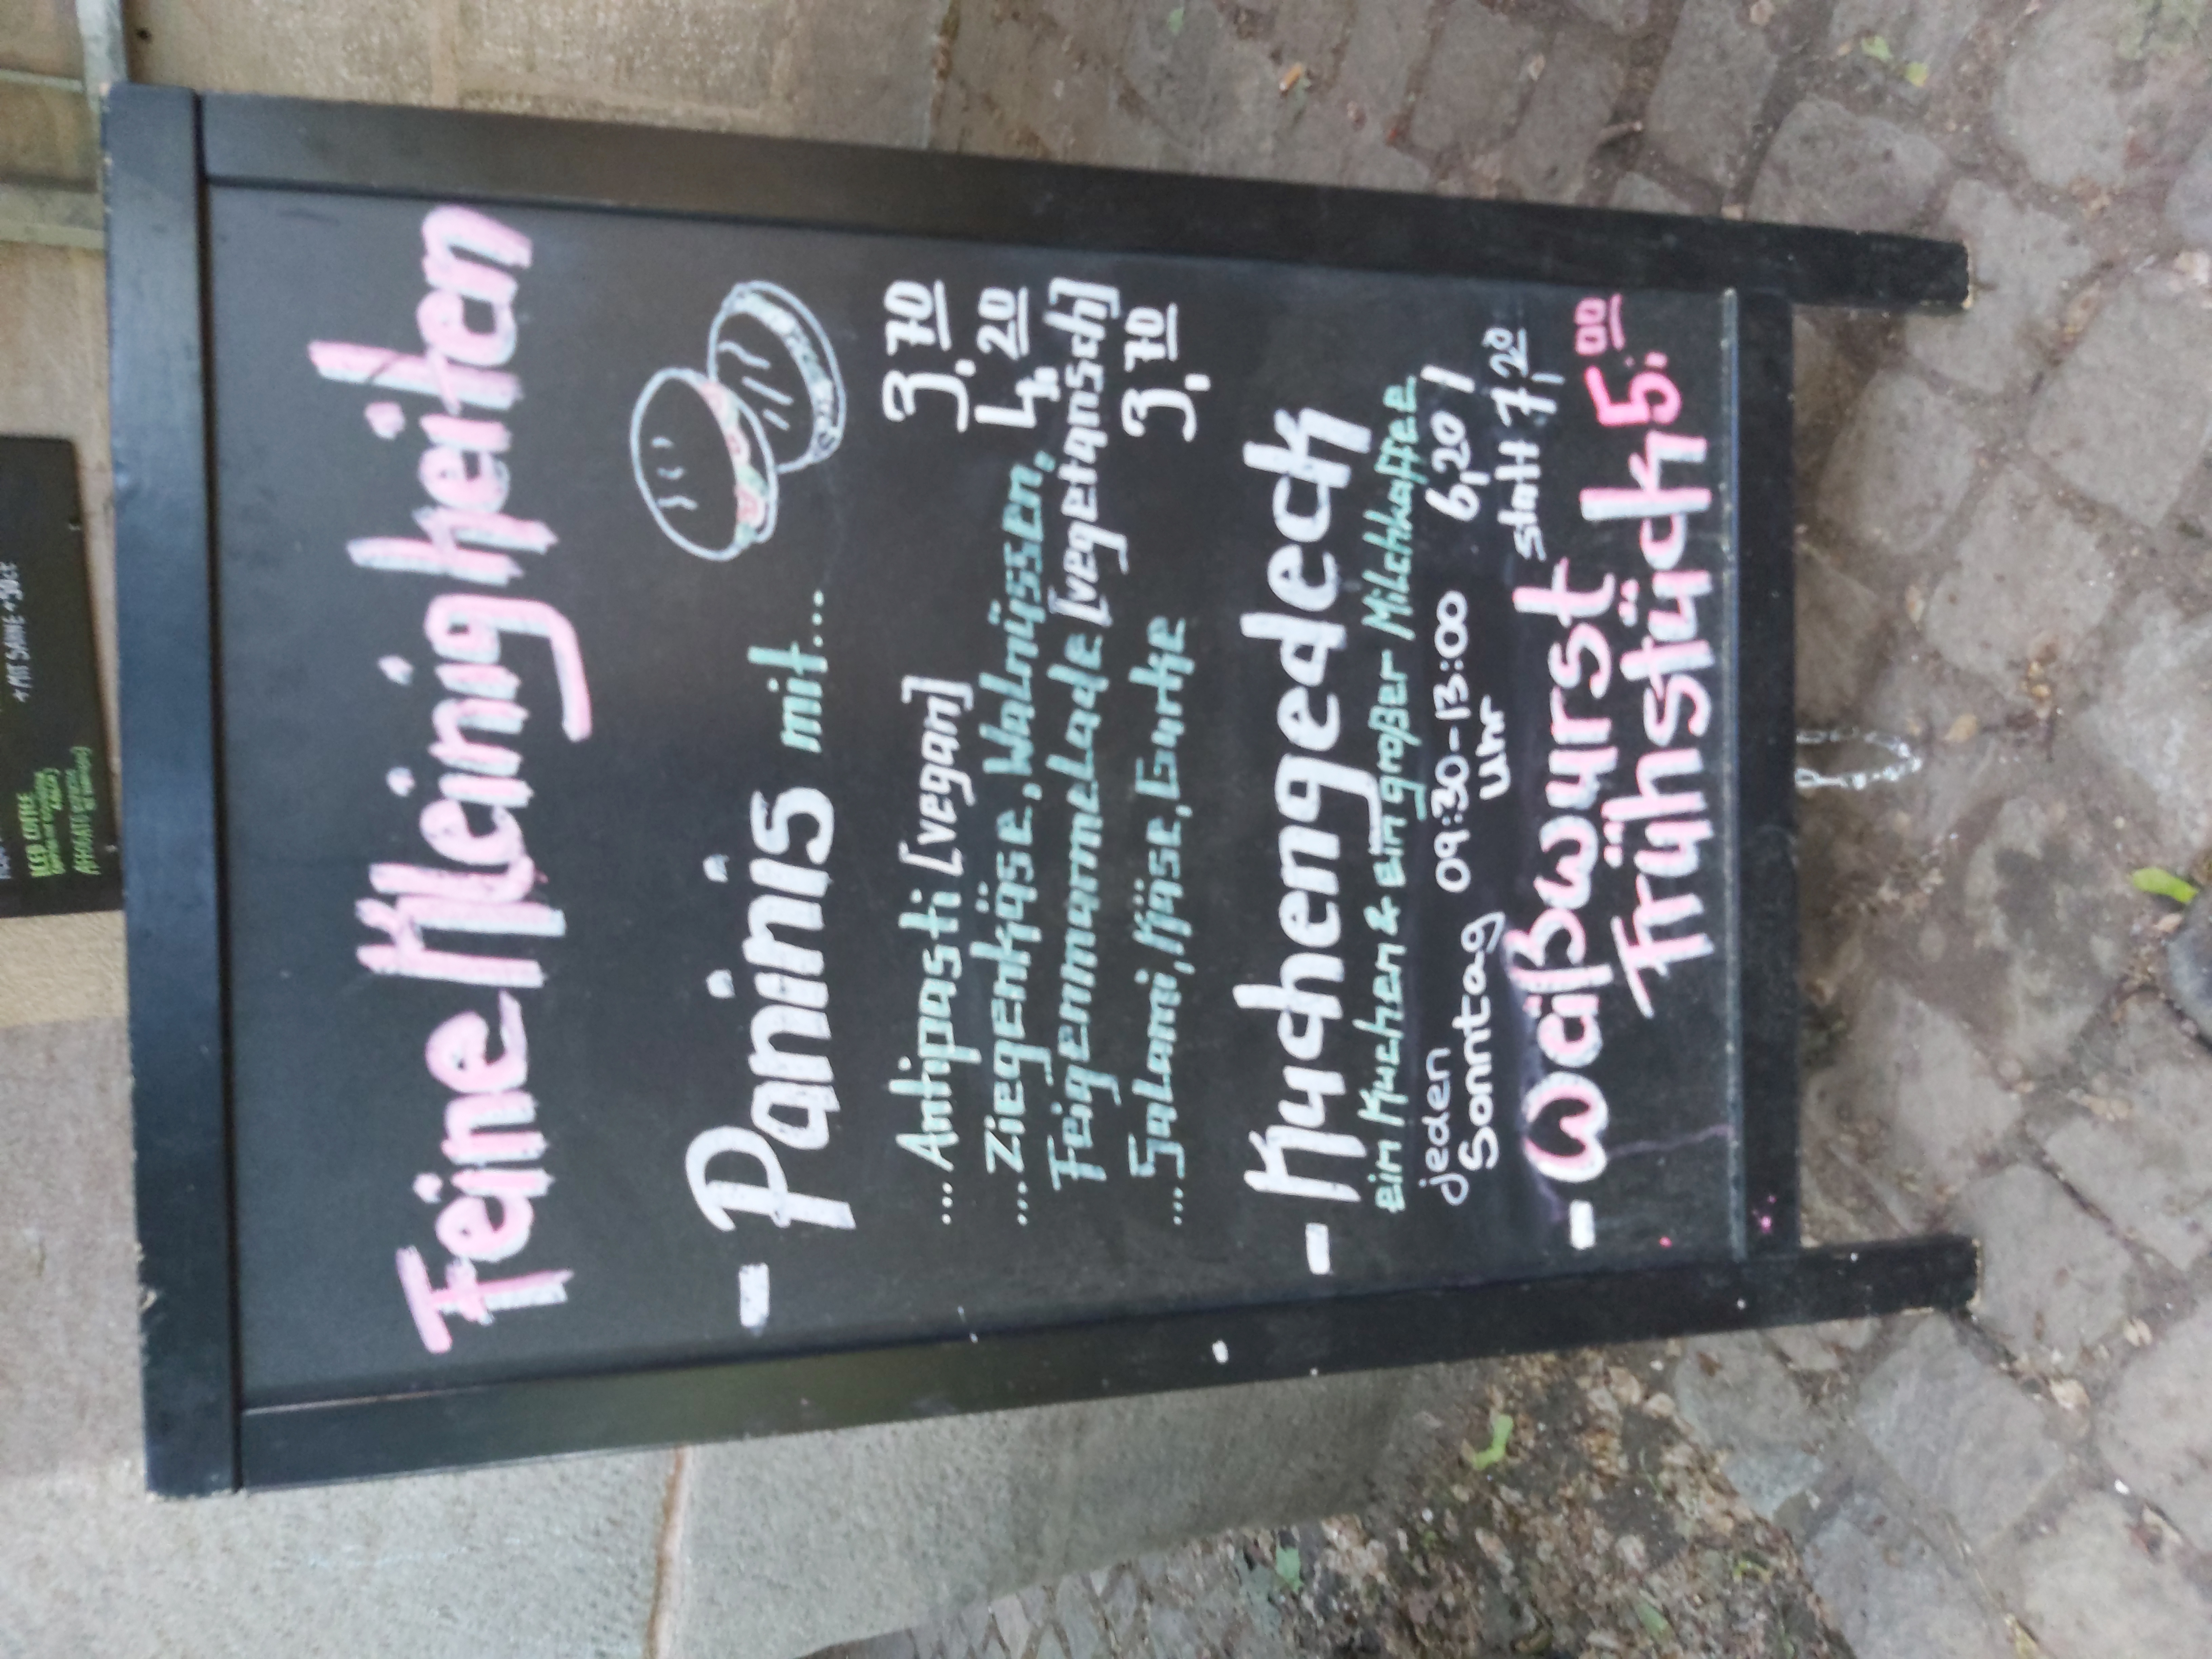 Feine Kleinigkeiten
- Paninis mit...
...Antipasti [vegan] 3,70
...Ziegenkäse, Walnüssen, 4,20
Feigenmarmelade [vegetarisch]
...Salami, Käse, Gurke 3,70
- Kuchengedeck
ein Kuchen & ein großer Milchkaffee
jeden 09:30-13:00 6,20 /
Sonntag Uhr statt 7,20
- Weißwurst
Frühstück 5,00
+ MIT SAHNE +50ct
ICED COFFEE
AFFOGATO